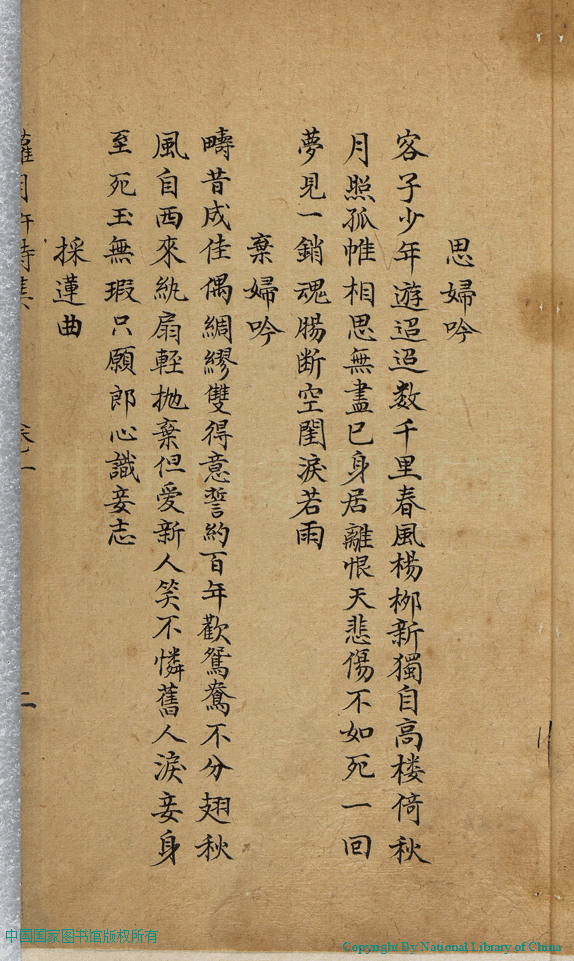 思婦吟
客子少年遊迢迢数千里春風楊栁新獨自高楼倚秋
月照孤帷相思無盡已身居離恨天悲傷不如死一回
夢見一銷魂腸断空閨淚若雨
棄婦吟
疇昔成佳偶綢繆雙得意誓約百年歡鴛鴦不分翅秋
風自西來紈扇輕抛棄但愛新人笑不憐舊人淚妾身
至死玉無瑕只願郎心識妾志
採蓮曲
二
中国国家图书馆版权所有
Copyright By National Library of China